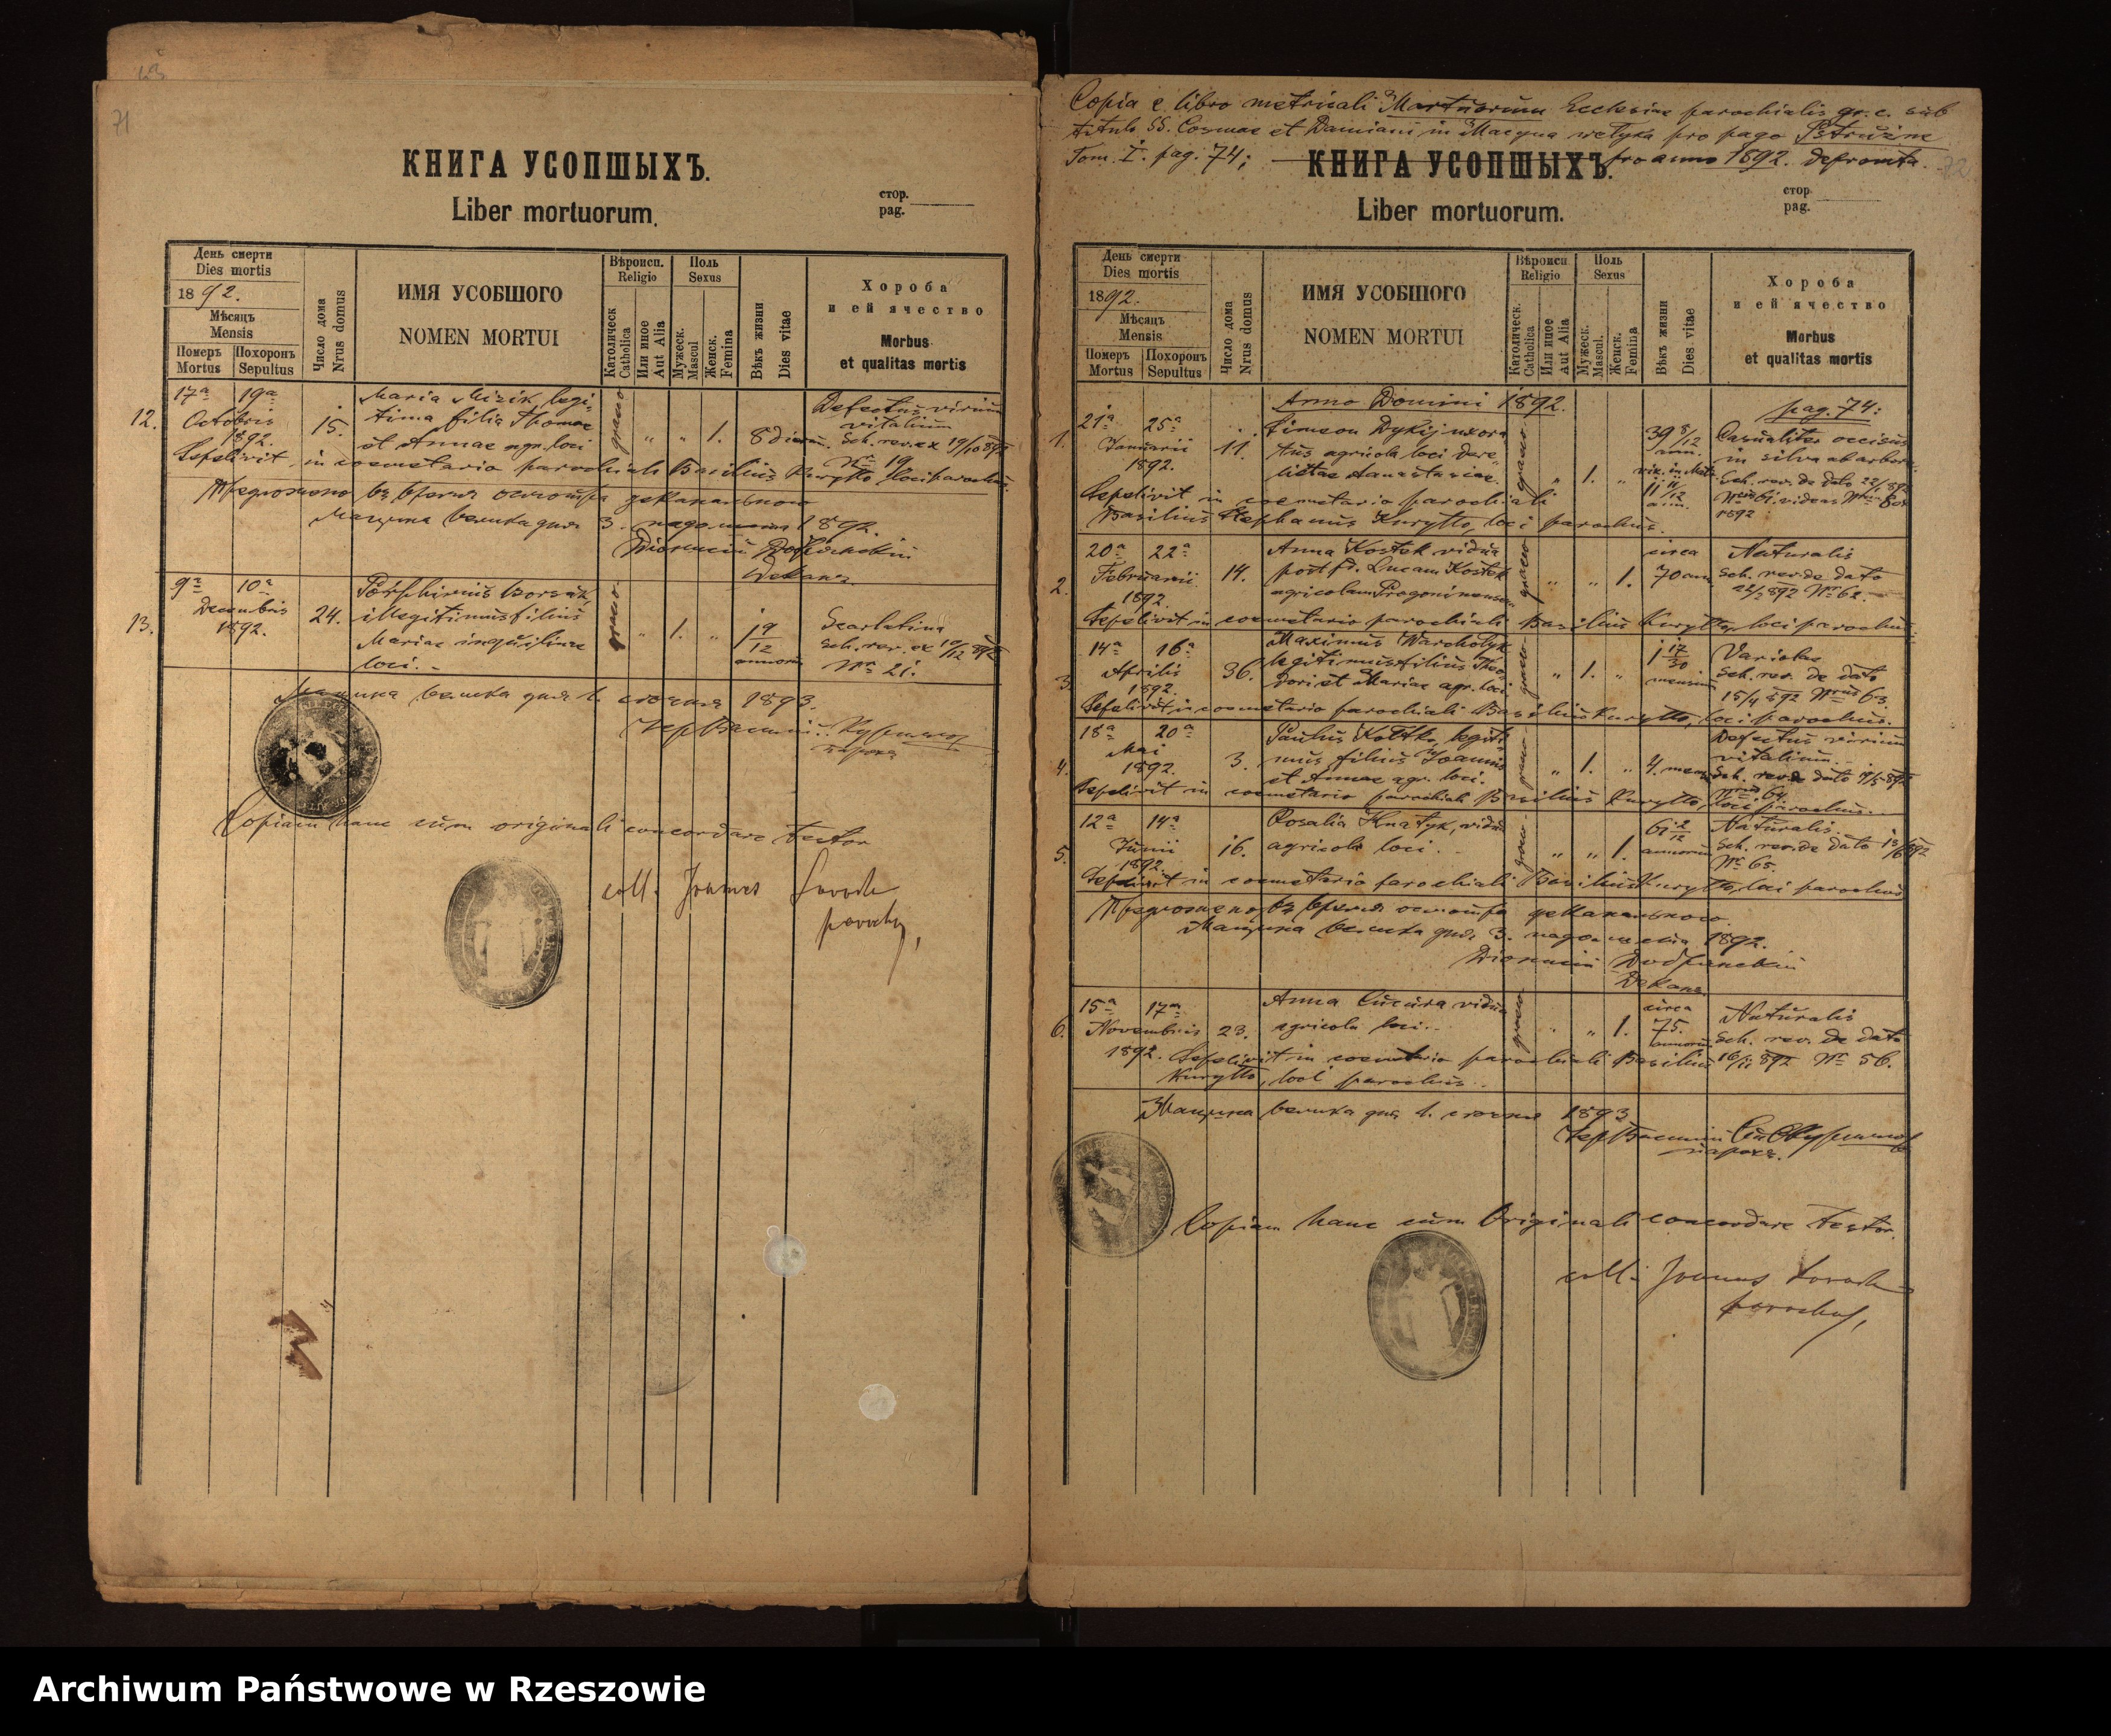 71
КНИГА УСОПШЫХЪ.
Liber mortuorum.
стор.
pag.
День смерти
Dies mortis
1892.
Мѣсяць
Mensis
Померъ
Mortus
Похоронъ
Sepultus
Число дома
Nrus domus
ИМЯ УСОБШОГО
NOMEN MORTUI
Вѣроисп.
Religio
Католическ
Catholica
Или иное
Aut Alia
Поль
Sexus
Мужеск.
Mascul
Женск.
Femina
Вѣкъ жизни
Dies vitae
Хороба
и ей ячество
Morbus
et qualitas mortis
12.
17a 19a
Octobris
1892.
15.
Maria Mizik, legi-
tima filia Thomae
et Annae agr. loci
graeco
„ „ 1.
8 dierum.
Defectus virium
vitalium
Sch. rev. ex 19/10 892
Nr. 19
Sepelivit in coemetario parochiali Basilius Kuryłło loci parochus.
Предложено въ время осмотра деканального
Мацина велика дня 3. падол. 1892.
Деканъ
13.
9a 10a
Decembris
1892.
24.
Porphirius Borsuk,
illegitimus filius
Mariae inquilinae
loci.
graeco
„ 1. „
1 9/12
annorum
Scarlatina
Sch. rev. ex 10/12 892
Nr. 21.
Мацина велика дня 1. сѣчня 1893.
парохъ
Copiam hanc cum originali concordare testor
coll. Joannes
parochus,
Copia e libro metricali Mortuorum Ecclesiae parochialis gr. c. sub
titulo SS. Cosmae et Damiani in Macyna wełyka pro pago Pstrużne
Tom. I. pag. 74; pro anno 1892. deprompta.
72
КНИГА УСОПШЫХЪ.
Liber mortuorum.
стор.
pag.
День смерти
Dies mortis
1892.
Мѣсяць
Mensis
Померъ
Mortus
Похоронъ
Sepultus
Число дома
Nrus domus
ИМЯ УСОБШОГО
NOMEN MORTUI
Вѣроисп
Religio
Католическ.
Catholica
Или иное
Aut Alia
Поль
Sexus
Мужеск.
Mascul.
Женск.
Femina
Вѣкъ жизни
Dies vitae
Хороба
и ей ячество
Morbus
et qualitas mortis
Anno Domini 1892.
pag. 74:
1.
21a 25a
Januarii
1892.
11.
Simeon Dykij uxora-
tus agricola loci dere-
lictae Anastasiae.
graeco
„ 1. „
39 8/12
ann.
11 11/12
ann.
Casualiter occisus
in silva ab arbore
Sch. rev. de dato 22/1 892
1892
Sepelivit in coemetario parochiali
Basilius Stephanus Kuryłło, loci parochus.
2.
20a 22a
Februarii
1892.
14.
Anna Kostek vidua
post fd. Lucam Kostek
agricolam
graeco
„ „ 1.
circa
70 ann.
Naturalis
Sch. rev. de dato
21/2 892 Nr. 62.
Sepelivit in coemetario parochiali Basilius Kuryłło, loci parochus.
3.
14a 16a
Aprilis
1892.
36.
Maximus Warcholyk
legitimus filius Theo-
dori et Mariae agr. loci
graeco
„ 1. „
1 17/30
mensium
Variolae
Sch. rev. de dato
15/4 892 Nrus 63.
Sepelivit in coemetario parochiali Basilius Kuryłło, loci parochus.
4.
18a 20a
Mai
1892.
3.
Paulus Kottko, legiti-
mus filius Joannis
et Annae agr. loci.
graeco
„ 1. „
4. mens.
Defectus virium
vitalium.
Sch. rev. de dato 19/5 892
Nrus 64.
Sepelivit in coemetario parochiali Basilius Kuryłło, loci parochus.
5.
12a 14a
Junii
1892.
16.
Rosalia Hnatyk, vidua
agricola loci.
graeco
„ „ 1.
61 2/12
annorum
Naturalis.
Sch. rev. de dato 13/6 892
Nr. 65.
Sepelivit in coemetario parochiali Basilius Kuryłło, loci parochus
Предложено въ время осмотра деканального.
Мацина велика дня 3. падол. 1892.
Деканъ
6.
15a 17a
Novembris
1892.
23.
Anna Cucura vidua
agricola loci.
graeco
„ „ 1.
circa
75.
annorum
Naturalis
Sch. rev. de dato
16/11 892 Nr. 56.
Sepelivit in coemetario parochiali Basilius
Kuryłło, loci parochus.
Мацина велика дня 1. сѣчня 1893
парохъ.
Copiam hanc cum Originali concordare testor.
coll. Joannes
parochus,
Archiwum Państwowe w Rzeszowie